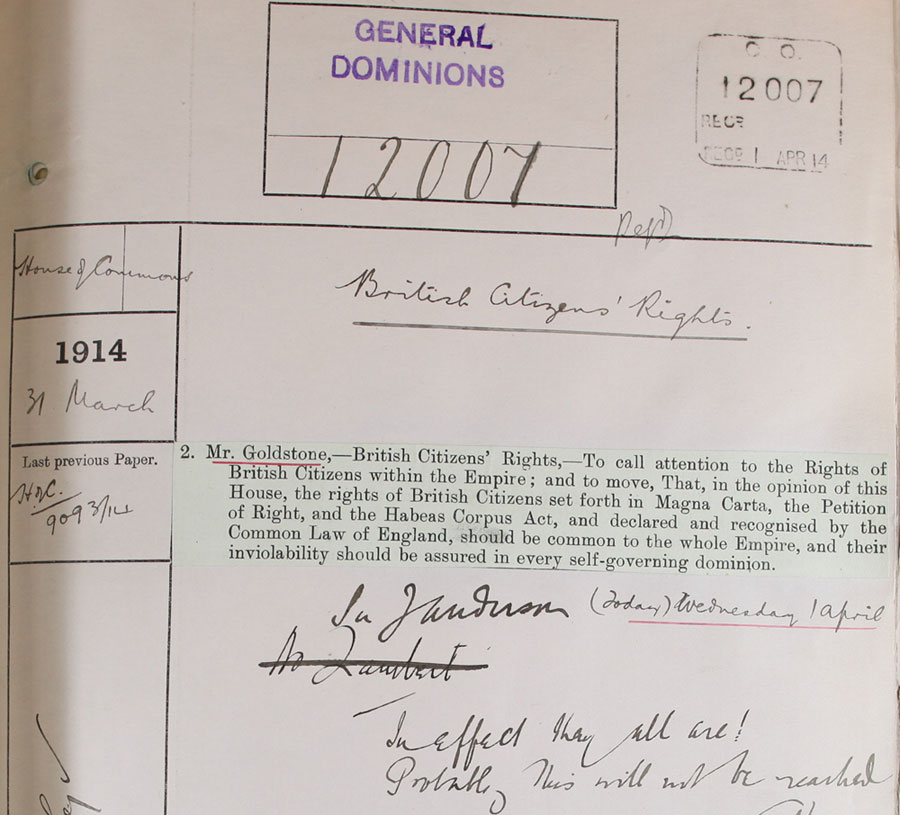 GENERAL
DOMINIONS
12007
C. O.
12007
RECD
REGD 1 APR 14
House of Commons
British Citizens' Rights.
1914
31 March
Last previous Paper.
H of C.
9093/14
2. Mr. Goldstone,—British Citizens' Rights,—To call attention to the Rights of
British Citizens within the Empire; and to move, That, in the opinion of this
House, the rights of British Citizens set forth in Magna Carta, the Petition
of Right, and the Habeas Corpus Act, and declared and recognised by the
Common Law of England, should be common to the whole Empire, and their
inviolability should be assured in every self-governing dominion.
Sir J Anderson (Today) Wednesday 1 april
Mr Lambert
In effect they all are!
Probably this will not be reached